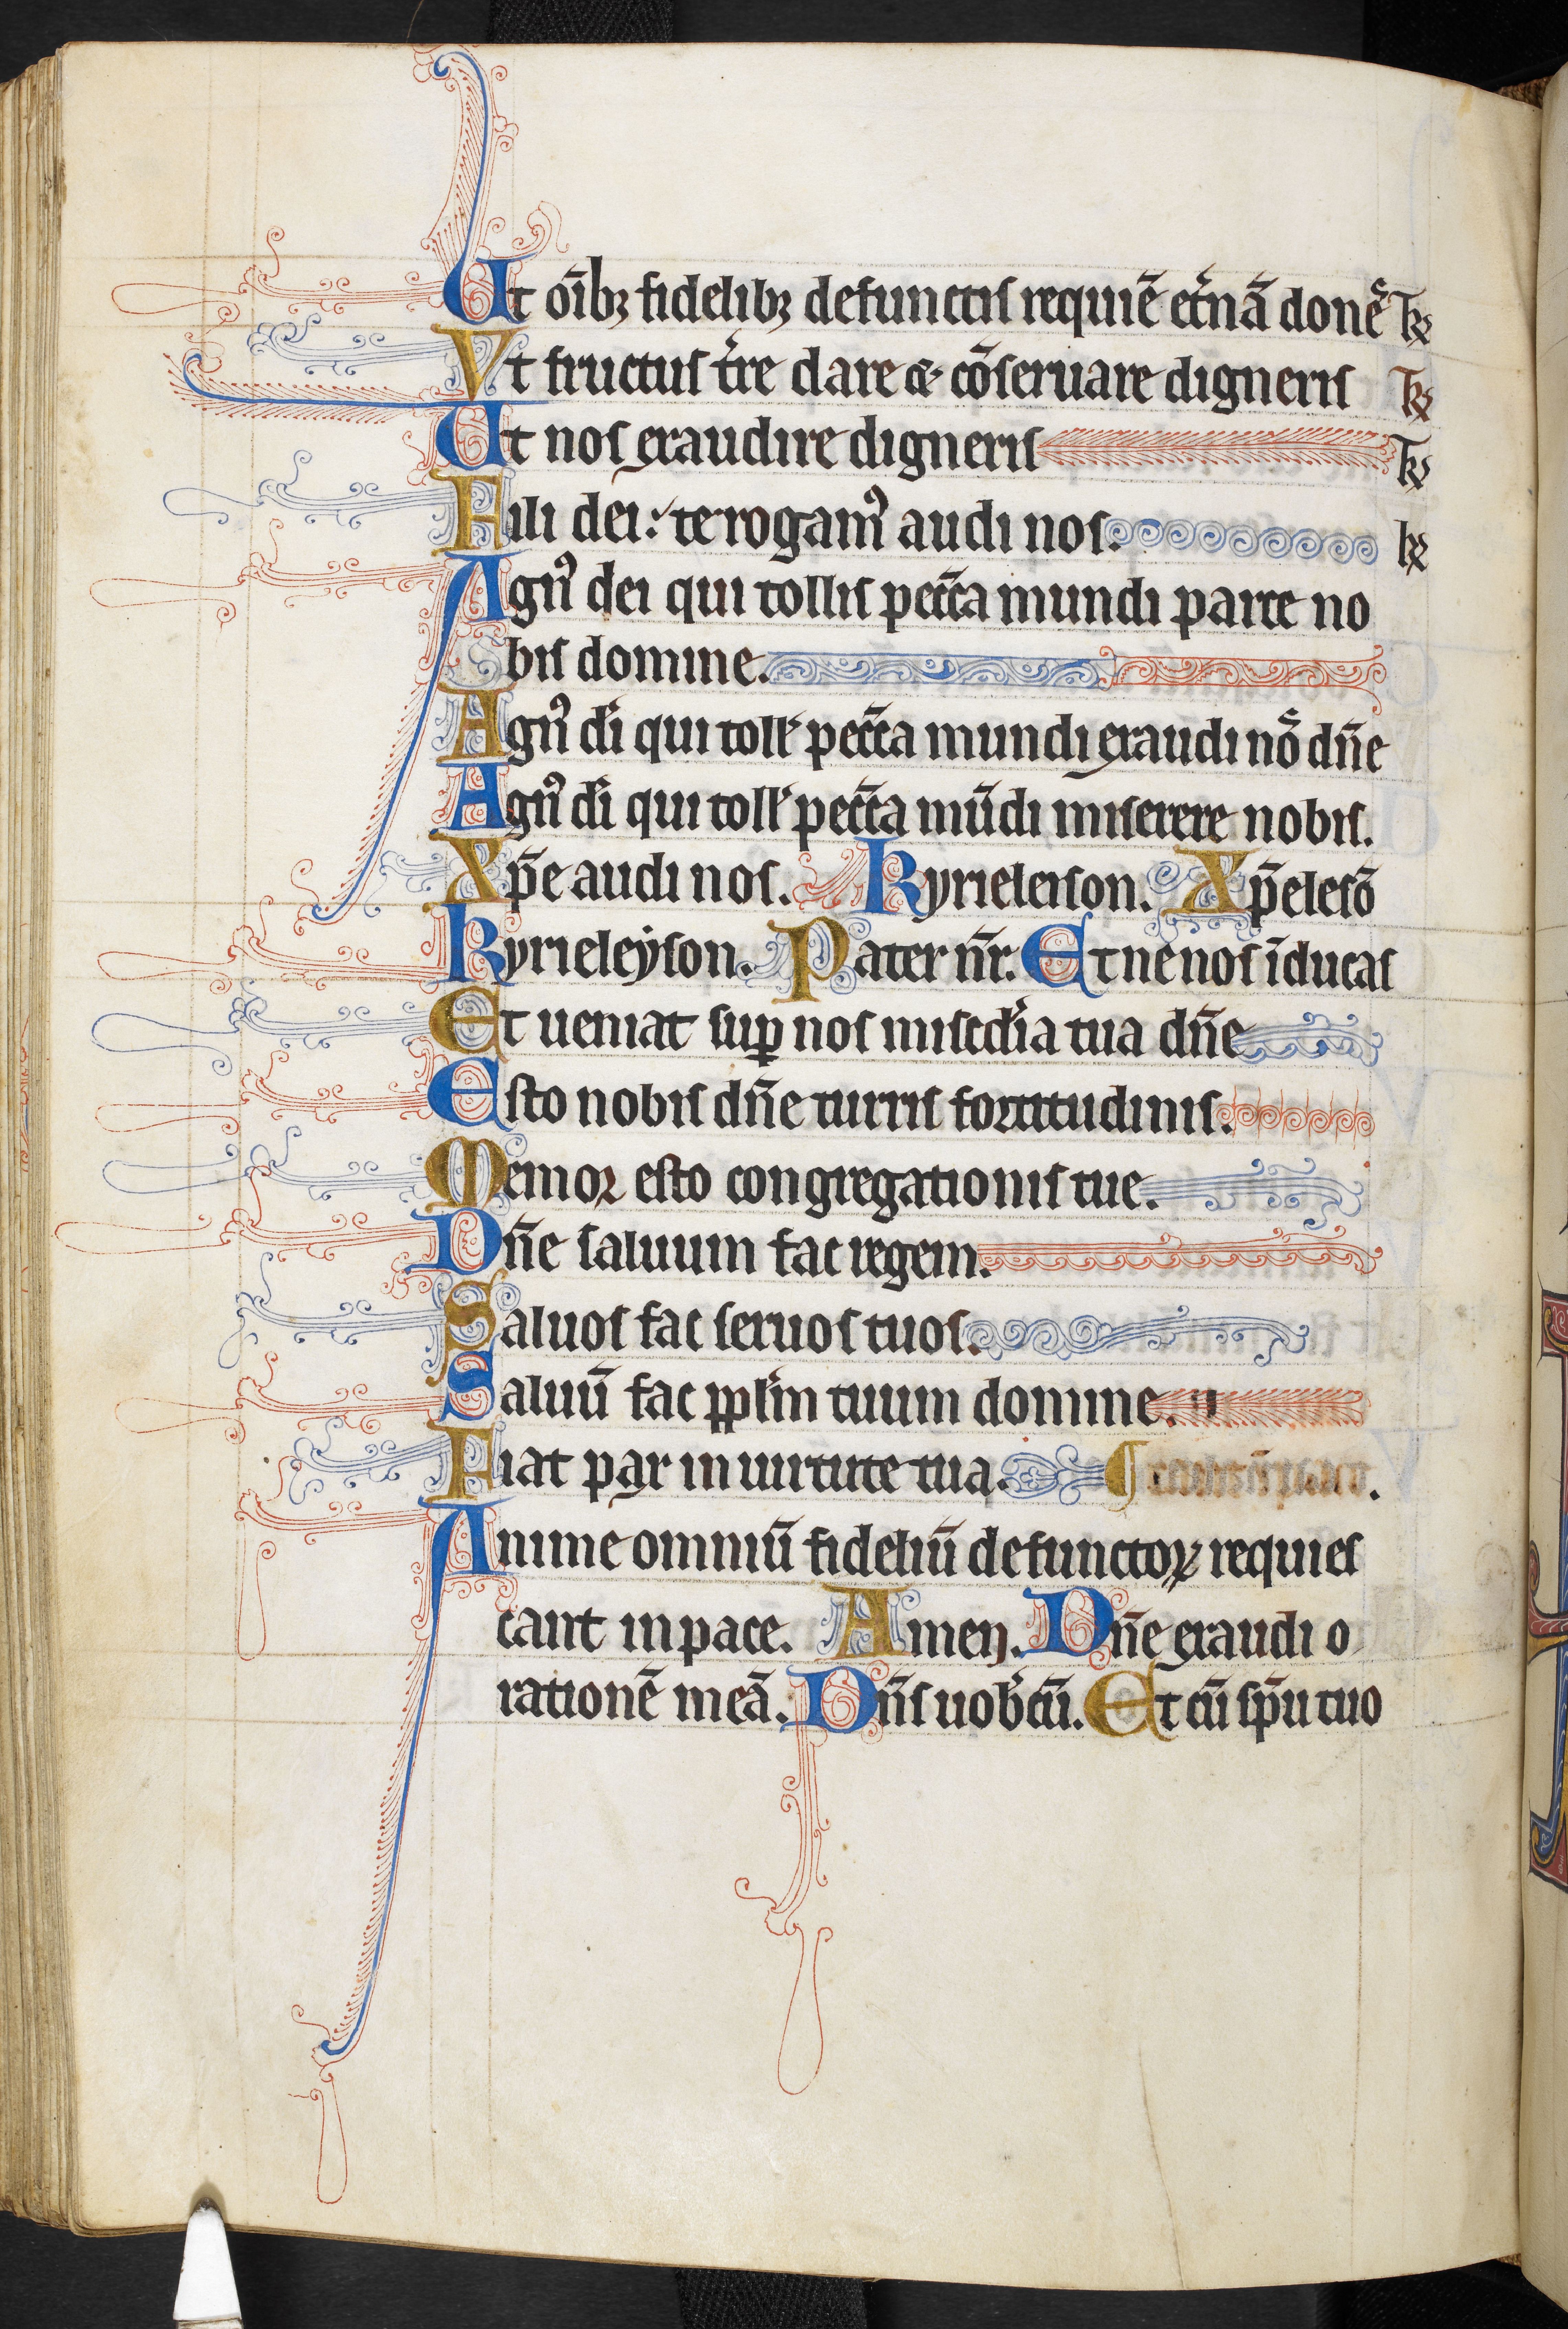 Ut oĩbꝫ fidelibꝫ defunctis requiẽ et̾nã donẽˢ Tͤ ꝛ
Vt fructus t̾re dare ⁊ cõseruare digneris Tͤ ꝛ
Ut nos exaudire digneris Tͤ ꝛ
Fili dei: te rogamꝰ audi nos.
Agnꝰ dei qui tollis pecc̃a mundi parce no
bis domine.
Agnꝰ di̾ qui toll̾ pecc̃a mundi exaudi noˢ dñe
Agnꝰ di̾ qui toll̾ pecc̃a mũdi miserere nobis.
Xp̃e audi nos. Kyrieleison. Xp̃elesõ
Kyrieleyson. Pater nr̃. Et ne nos ĩducas
Et ueniat suꝑ nos misc̾dia tua dñe
Esto nobis dñe turris fortitudinis.
Memor esto congregationis tue.
Dñe saluum fac regem.
Saluos fac seruos tuos.
Saluũ fac ppl̾m tuum domine.
Fiat pax in uirtute tua.
Anime omniũ fideliũ defunctoꝝ requies
cant in pace. Amen. Dñe exaudi o
rationẽ meã. Dñs uob̾cũ. Et cũ sp̃u tuo